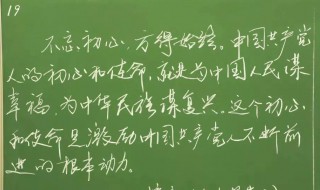 19
不忘初心，方得始终。中国共产党
人的初心和使命，就是为中国人民谋
幸福，为中华民族谋复兴。这个初心
和使命是激励中国共产党人不断前
进的根本动力。